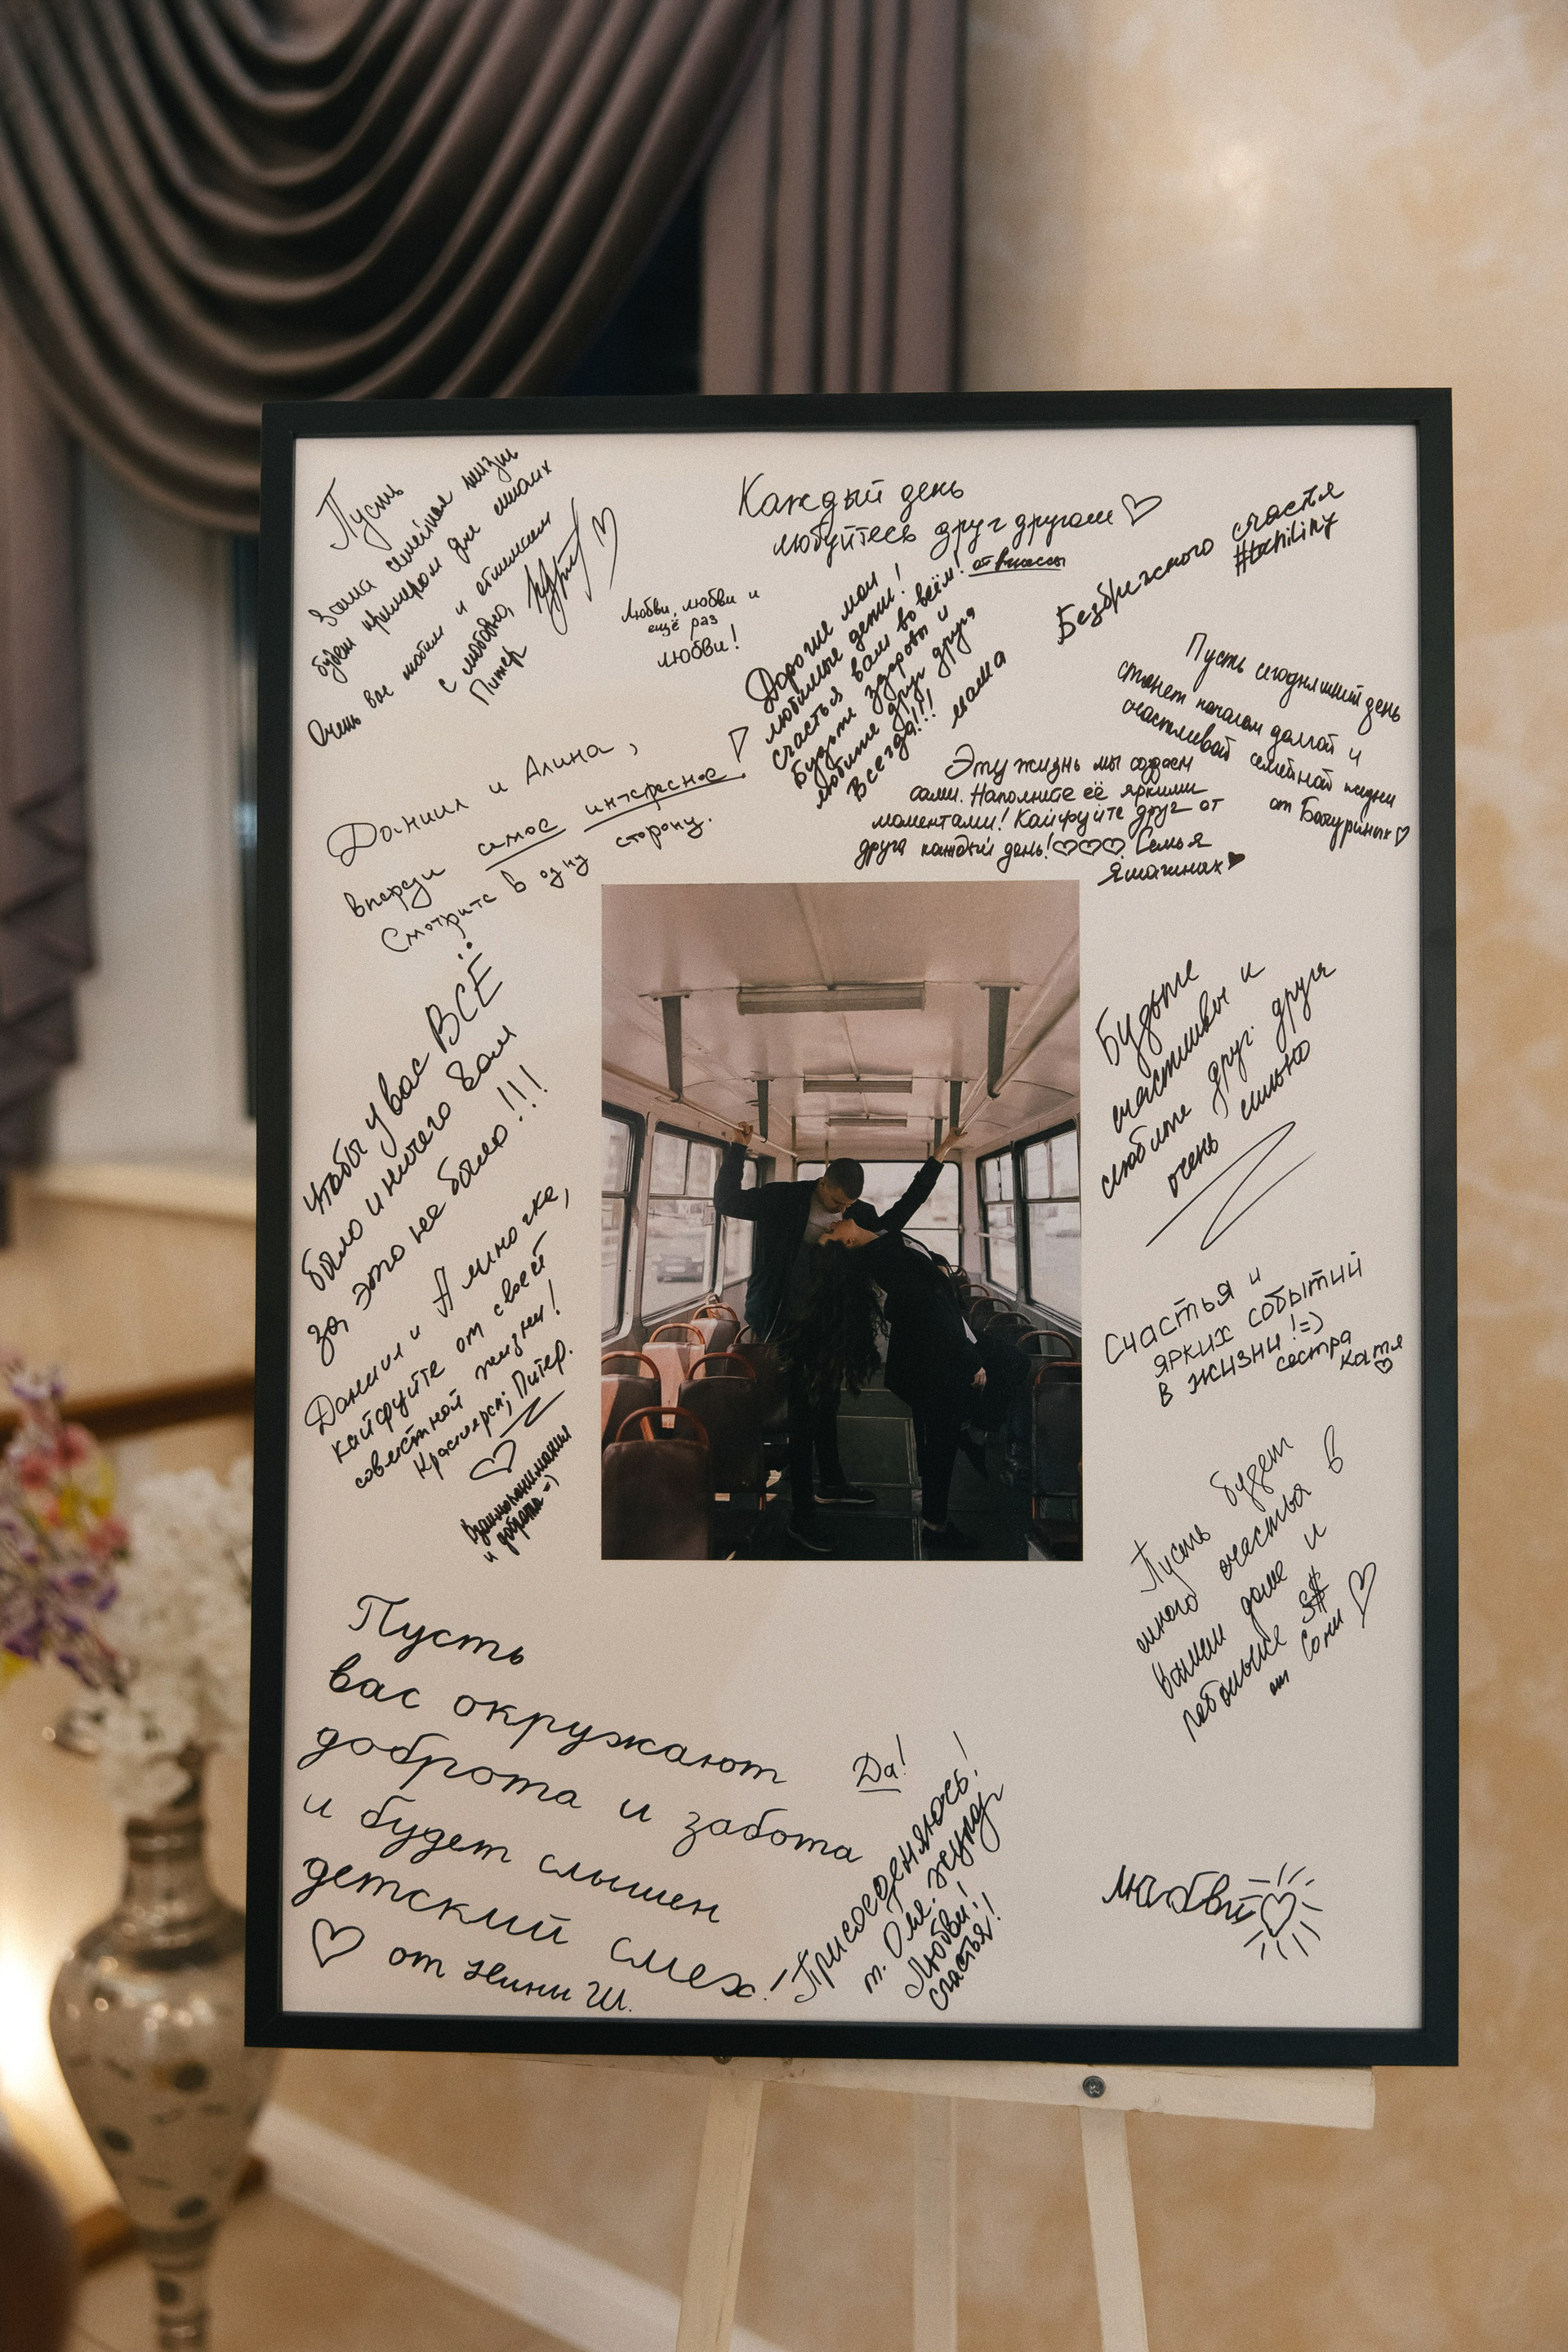 Пусть
Ваша семейная жизнь
будет примером для многих
Очень вас любим и обнимаем
с любовью,
Питер
Каждый день
любуйтесь друг другом ♡
Любви, любви и
ещё раз
любви!
Дорогие мои
любимые дети!
Счастья вам во всём!
Будьте здоровы и
любите друг друга
Всегда!!!
мама
Безбрежного счастья
Пусть сегодняшний день
станет началом долгой и
счастливой семейной жизни
от Батуриных ♡
Даниил и Алина,
впереди самое интересное!
Смотрите в одну сторону.
Эту жизнь мы создаем
сами. Наполните её яркими
моментами! Кайфуйте друг от
друга каждый день! ♡♡♡ Семья
Чтобы у вас ВСЁ
было и ничего вам
за это не было!!!
Будьте
счастливы и
любите друг друга
очень сильно
Даниил и Алиночка,
кайфуйте от своей
совместной жизни!
Красноярск, Питер.
♡
Взаимопонимания
и добра =)
Счастья и
ярких событий
в жизни! =)
сестра
Катя
♡
Пусть будет
много счастья в
вашем доме и
побольше $$
от Сони ♡
Пусть
вас окружают
доброта и забота
и будет слышен
детский смех!
♡ от Нини Ш.
Да!
Присоеденяюсь!
т. Оля.
Любви!
Счастья!
любви ♡